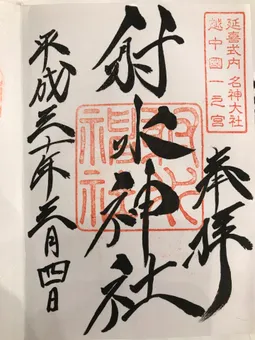 延喜式内 名神大社
越中國一之宮
奉拝
射水神社
射水神社
平成三十一年三月四日